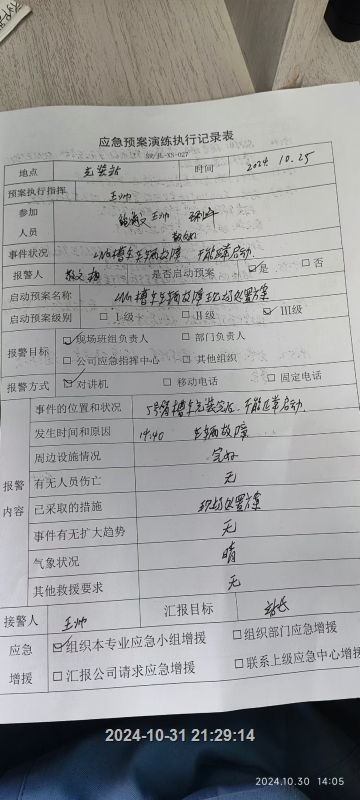 应急预案演练执行记录表
地点 充装站 时间 2024 10.25
预案执行指挥 王帅
参加
人员 王帅
事件状况 LNG槽车车辆故障 不能正常启动
报警人 是否启动预案 ☑是 □否
启动预案名称 LNG槽车车辆故障现场处置方案
启动预案级别 □ I 级 □ II 级 ☑ III级
报警目标 ☑现场班组负责人 □部门负责人
□公司应急指挥中心 □其他组织
报警方式 ☑对讲机 □移动电话 □固定电话
报警
内容
事件的位置和状况 5号位槽车充装完后，不能正常启动.
发生时间和原因 14:40 车辆故障
周边设施情况 完好
有无人员伤亡 无
已采取的措施 现场处置方案
事件有无扩大趋势 无
气象状况 晴
其他救援要求 无
接警人 王帅 汇报目标 站长
应急
增援
☑组织本专业应急小组增援 □组织部门应急增援
□汇报公司请求应急增援 □联系上级应急中心增援
2024-10-31 21:29:14
2024.10.30 14:05